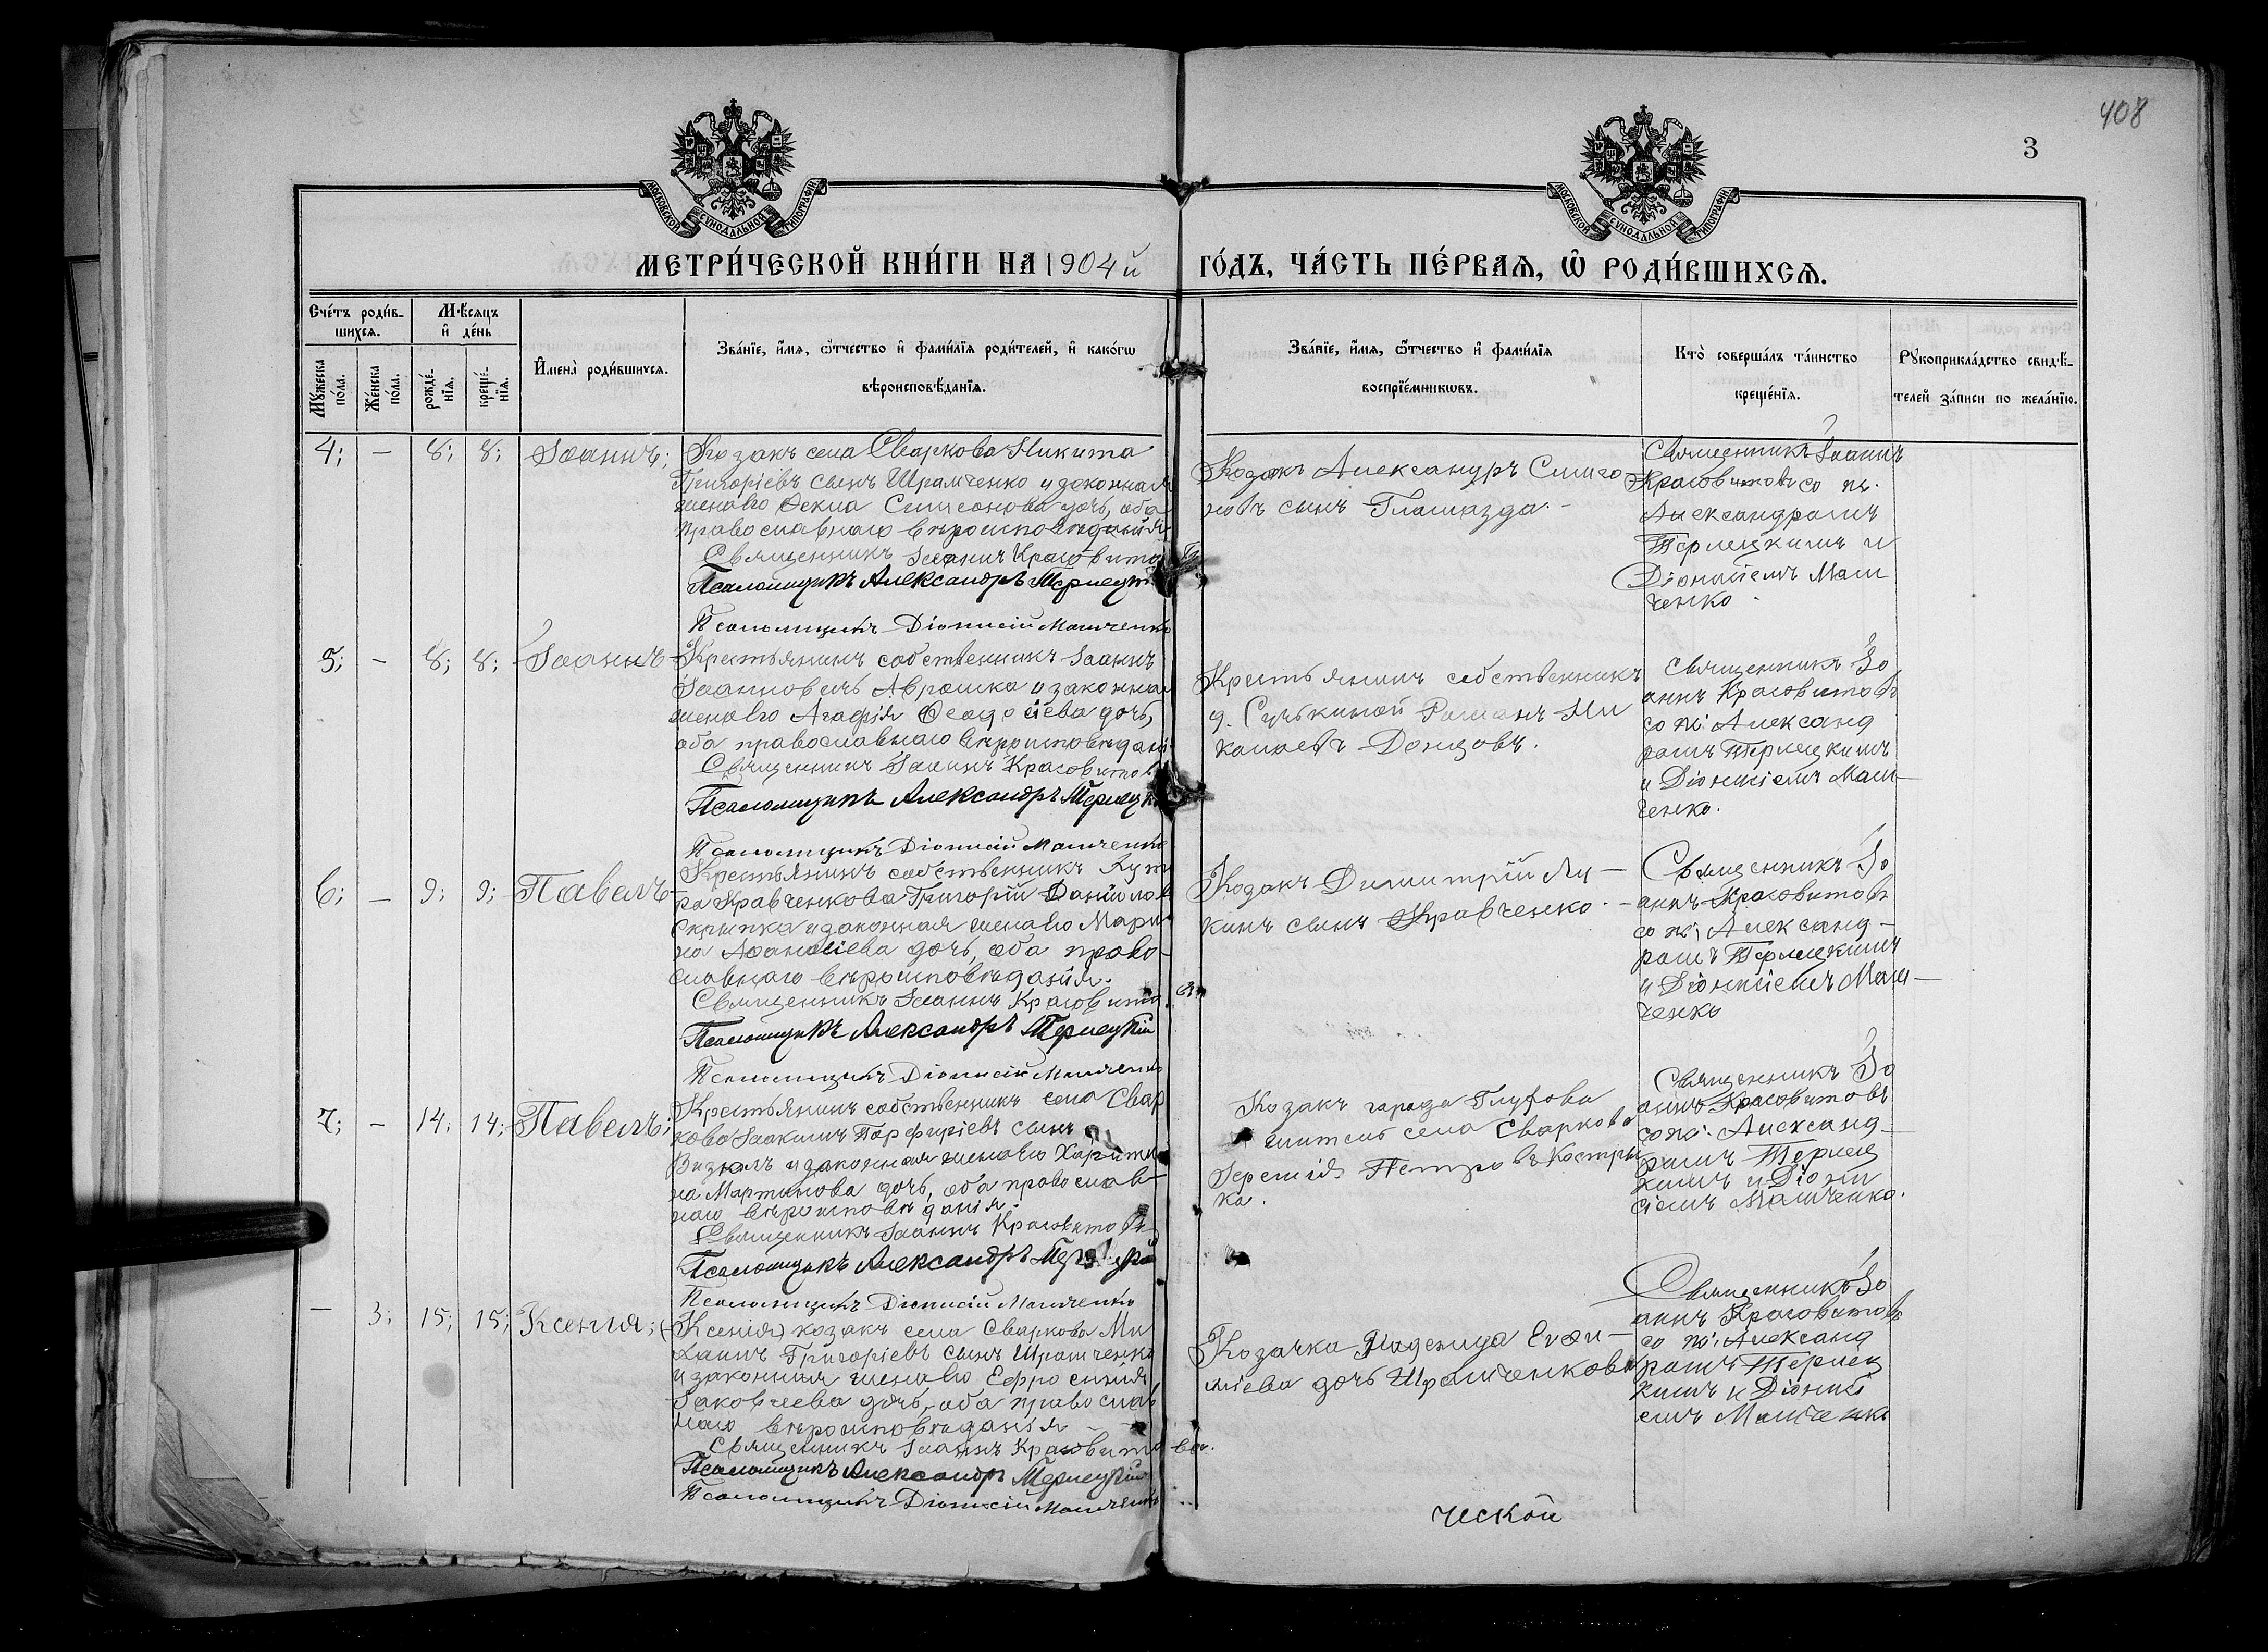 408
3
МОСКОВСКОЙ СѴНОДАЛЬНОЙ ТИПОГРАФІИ
МОСКОВСКОЙ СѴНОДАЛЬНОЙ ТИПОГРАФІИ
МЕТРИ́ЧЕСКОЙ КНИ́ГИ НА 1904й ГО́ДЪ, ЧА́СТЬ ПЕ́РВАѦ, Ѿ РОДИ́ВШИХСѦ.
Сче́тъ роди́в-
шихсѧ.
Мꙋ́жеска
по́ла.
Же́нска
по́ла.
Мѣ́сѧцъ
и҆ де́нь
рожде́-
нїѧ.
креще́-
нїѧ.
И҆мена̀ роди́вшихсѧ.
Зва́нїе, и҆́мѧ, ѻ҆́тчество и҆ фами́лїѧ роди́телей, и҆ како́гѡ
вѣроисповѣ́данїѧ.
Зва́нїе, и҆́мѧ, ѻ҆́тчество и҆ фами́лїѧ
воспрїе́мникѡвъ.
Кто̀ соверша́лъ та́инство
креще́нїѧ.
Рꙋкоприкла́дство свидѣ́-
телей за́писи по жела́нїю.
4; — 8; 8; Іоаннъ;
Козакъ села Сваркова Никита
Григоріевъ сынъ Шрамченко и законная
жена его Ѳекла Симеонова дочь, оба
православнаго вѣроисповѣданія
Священникъ Іоаннъ Красовитовъ
Псаломщикъ Александръ Терлецкій
Псаломщикъ Діонисій Мамченко
Козакъ Александръ
сынъ
Священникъ Іоаннъ
Красовитовъ со пс.
Александромъ
Терлецкимъ и
Діонисіемъ Мам
ченко.
5; — 8; 8; Іоаннъ
Крестьянинъ собственникъ Іоаннъ
Іоанновичъ Аврошка и законная
жена его Агафія Ѳеодосіева дочь,
оба православнаго вѣроисповѣданія
Священникъ Іоаннъ Красовитовъ
Псаломщикъ Александръ Терлецкій
Псаломщикъ Діонисій Мамченко
Крестьянинъ собственникъ
д. Сутькиной Романъ Ни
колаевъ Донцовъ.
Священникъ Іо
аннъ Красовитовъ
со пс. Александ
ромъ Терлецкимъ
и Діонисіемъ Мам-
ченко.
6; — 9; 9; Павелъ
Крестьянинъ собственникъ хуто
ра Кравченкова Григорій Даніиловъ
Скрипка и законная жена его Мари
на Аѳанасіева дочь, оба право-
славнаго вѣроисповѣданія.
Священникъ Іоаннъ Красовитовъ
Псаломщикъ Александръ Терлецкій
Псаломщикъ Діонисій Мамченко
Козакъ Димитрій Лу-
кинъ сынъ Кравченко.
Священникъ Іо
аннъ Красовитовъ
со пс. Александ-
ромъ Терлецкимъ
и Діонисіемъ Мам-
ченко
7; — 14; 14; Павелъ;
Крестьянинъ собственникъ села Свар
кова Іоакимъ Порфиріевъ сынъ
и законная жена его Харити
на Мартинова дочь, оба православ-
наго вѣроисповѣданія.
Священникъ Іоаннъ Красовитовъ
Псаломщикъ Александръ Терлецкій
Псаломщикъ Діонисій Мамченко
Козакъ города Глухова
житель села Сваркова
Іеремія Петровъ Костри
ка.
Священникъ Іо
аннъ Красовитовъ
со пс. Александ-
ромъ Терлец
кимъ и Діони
сіемъ Мамченко.
— 3; 15; 15; Ксенія;
(Ксенія) козакъ села Сваркова Ми
хаилъ Григоріевъ сынъ Шрамченко
и законная жена его Ефросинія
Іаковлева дочь, оба православ
наго вѣроисповѣданія
Священникъ Іоаннъ Красовитовъ.
Псаломщикъ Александръ Терлецкій
Псаломщикъ Діонисій Мамченко
Козачка Надежда Евѳи-
міева дочь Шрамченкова
Священникъ Іо
аннъ Красовитовъ
со пс. Александ
ромъ Терлец
кимъ и Діонисі
емъ Мамченко
ческой